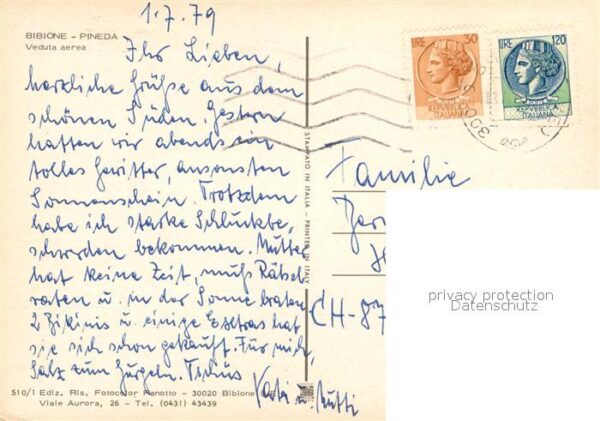 1.7.79
BIBIONE - PINEDA
Veduta aerea
Ihr Lieben,
herzliche Grüße aus dem
schönen Süden. Gestern
hatten wir abends ein
tolles Gewitter, ansonsten
Sonnenschein. Trotzdem
habe ich starke Schluckbe,
schwerden bekommen. Mutter
hat keine Zeit, muß Rätsel
raten u. in der Sonne braten
2 Bikinis u. einige Extras hat
sie sich schon gekauft. Für mich,
Salz zum Gurgeln. Tschüs
Mutti
510/1 Ediz. Ris. Fotocolor Panotto - 30020 Bibione
Viale Aurora, 26 - Tel. (0431) 43439
STAMPATO IN ITALIA - PRINTED IN ITALY
LIRE 50
REPVBBLICA
ITALIANA
LIRE 120
REPVBBLICA
ITALIANA
Familie
CH-87
privacy protection
Datenschutz